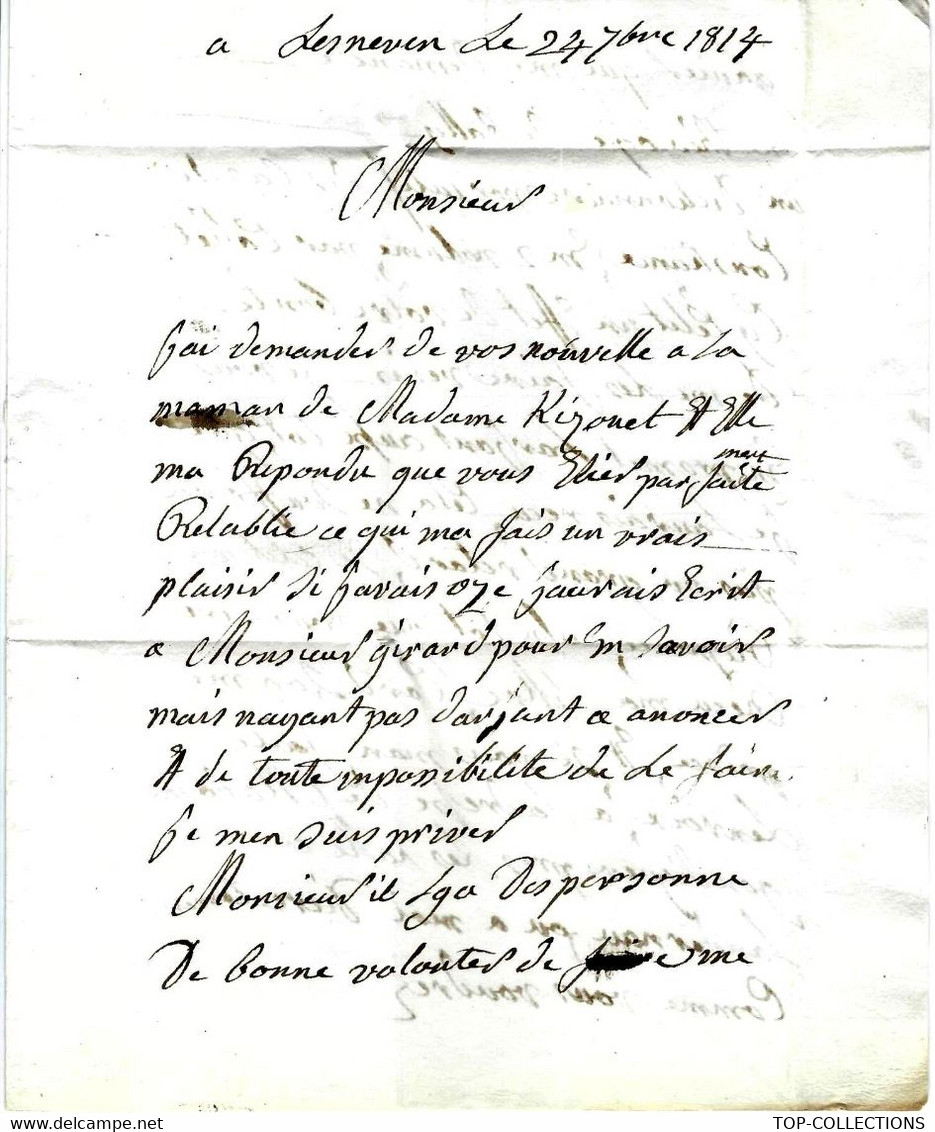 a Lesneven Le 24 7bre 1814
Monsieur
j'ai demander de vos nouvelle a La
maman de Madame Kizouet Et Elle
ma Repondu que vous Eties parfaite ment
Retablie ce qui ma fais un vrais
plaisir Si javais oze jaurais Ecrit
a Monsieur girard pour En Savoir
mais nayant pas darjant a anoncer
Et de toute impossibilite de Le faire
je men Suis priver
Monsieur il Lya Des personne
De bonne volonter de me
TOP-COLLECTIONS